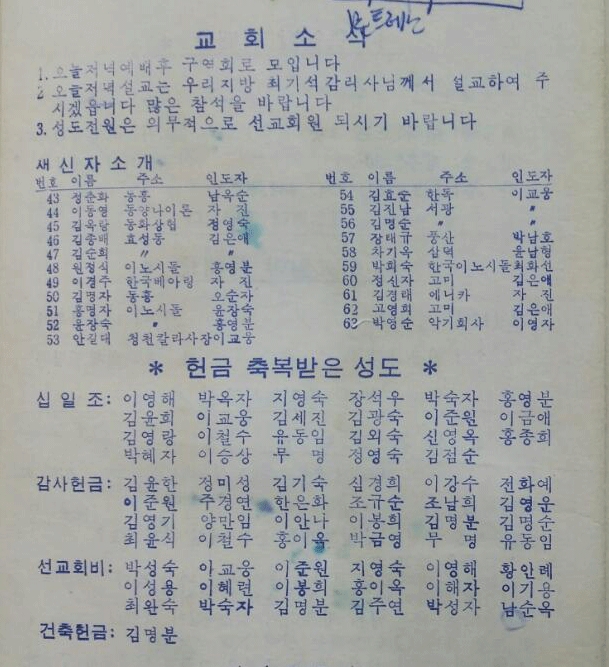 본트레닌
교 회 소 식
1. 오늘저녁예배후 구역회로 모입니다
2 오늘저녁설교는 우리지방 최기석감리사님께서 설교하여 주
시겠읍니다 많은 참석을 바랍니다
3. 성도전원은 의무적으로 선교회원 되시기 바랍니다
새신자소개
번호 이름 주소 인도자 번호 이름 주소 인도자
43 정순화 동흥 남옥순 54 김효순 한독 이교웅
44 이동영 동양나이론 자 진 55 김진남 서광 〃
45 김옥랑 동화상업 정영숙 56 김명순 〃
46 김종배 효성동 김은애 57 장태규 풍산 박남호
47 김순희 〃 〃 58 차기옥 삼덕 윤남형
48 원정식 이노시돌 홍영분 59 박희숙 한국이노시돌최화선
49 이경주 한국베아링 자 진 60 정선자 고미 김은애
50 김명자 동흥 오순자 61 김경태 에니카 자 진
51 홍명자 이노시돌 윤장숙 62 고영희 고미 김은애
52 윤장숙 〃 홍영분 63 박영순 악기회사 이영자
53 안길대 청천칼라사장이교웅
* 헌금 축복받은 성도 *
십 일 조: 이영해 박옥자 지영숙 장석우 박숙자 홍영분
김윤희 이교웅 김세진 김광숙 이준원 이금애
김영랑 이철수 유동임 김외숙 신영옥 홍종희
박혜자 이승상 무 명 정영숙 김점순
감사헌금: 김윤한 정미성 김기숙 심경희 이강수 전화예
이준원 주경연 한은화 조규순 조남희 김영운
김영기 양만임 이안나 이봉희 김명분 김명순
최윤식 이철수 홍이옥 박금영 무 명 유동임
선교회비: 박성숙 아교웅 이준원 지영숙 이영해 황안례
이성용 이혜련 이봉희 홍이옥 이해자 이기용
최완숙 박숙자 김명분 김주연 박성자 남순옥
건축헌금: 김명분